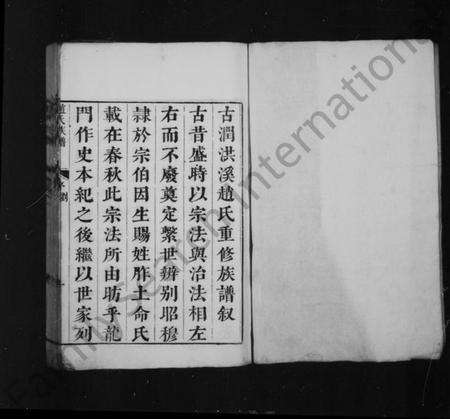 古潤洪溪趙氏重修族譜叙
古昔盛時以宗法與治法相左
右而不廢奠定繫世辨别昭穆
隸於宗伯因生賜姓胙土命氏
載在春秋此宗法所由昉乎龍
門作史本紀之後繼以世家列
趙氏族譜
Family Search International